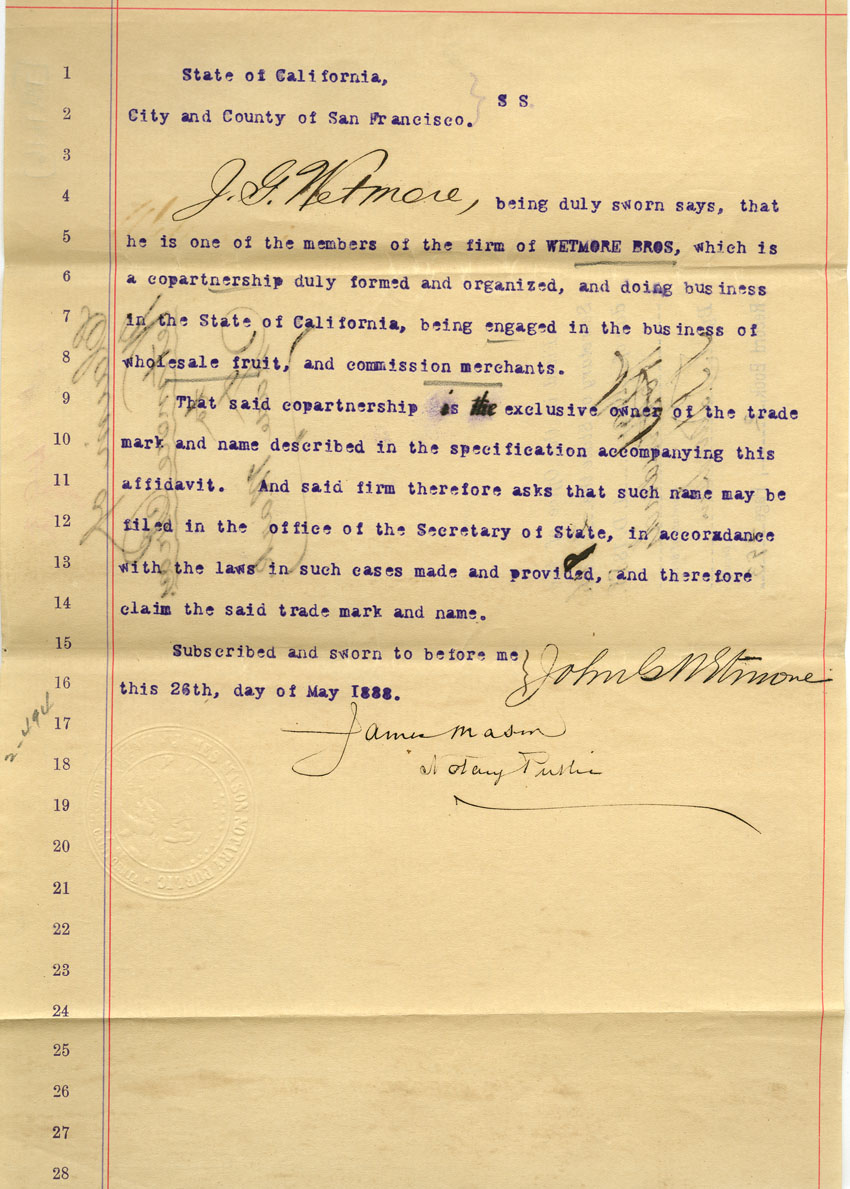 1 State of California,
S S.
2 City and County of San Francisco.
3
4 J. G. Wetmore, being duly sworn says, that
5 he is one of the members of the firm of WETMORE BROS, which is
6 a copartnership duly formed and organized, and doing business
7 in the State of California, being engaged in the business of
8 wholesale fruit, and commission merchants.
9 That said copartnership is the exclusive owner of the trade
10 mark and name described in the specification accompanying this
11 affidavit. And said firm therefore asks that such name may be
12 filed in the office of the Secretary of State, in accordance
13 with the laws in such cases made and provided, and therefore
14 claim the said trade mark and name.
15 Subscribed and sworn to before me
16 this 26th, day of May 1888.
John G Wetmore
17 James Mason
18 Notary Public
2-494
19
20
21
22
23
24
25
26
27
28
MASON NOTARY PUBLIC